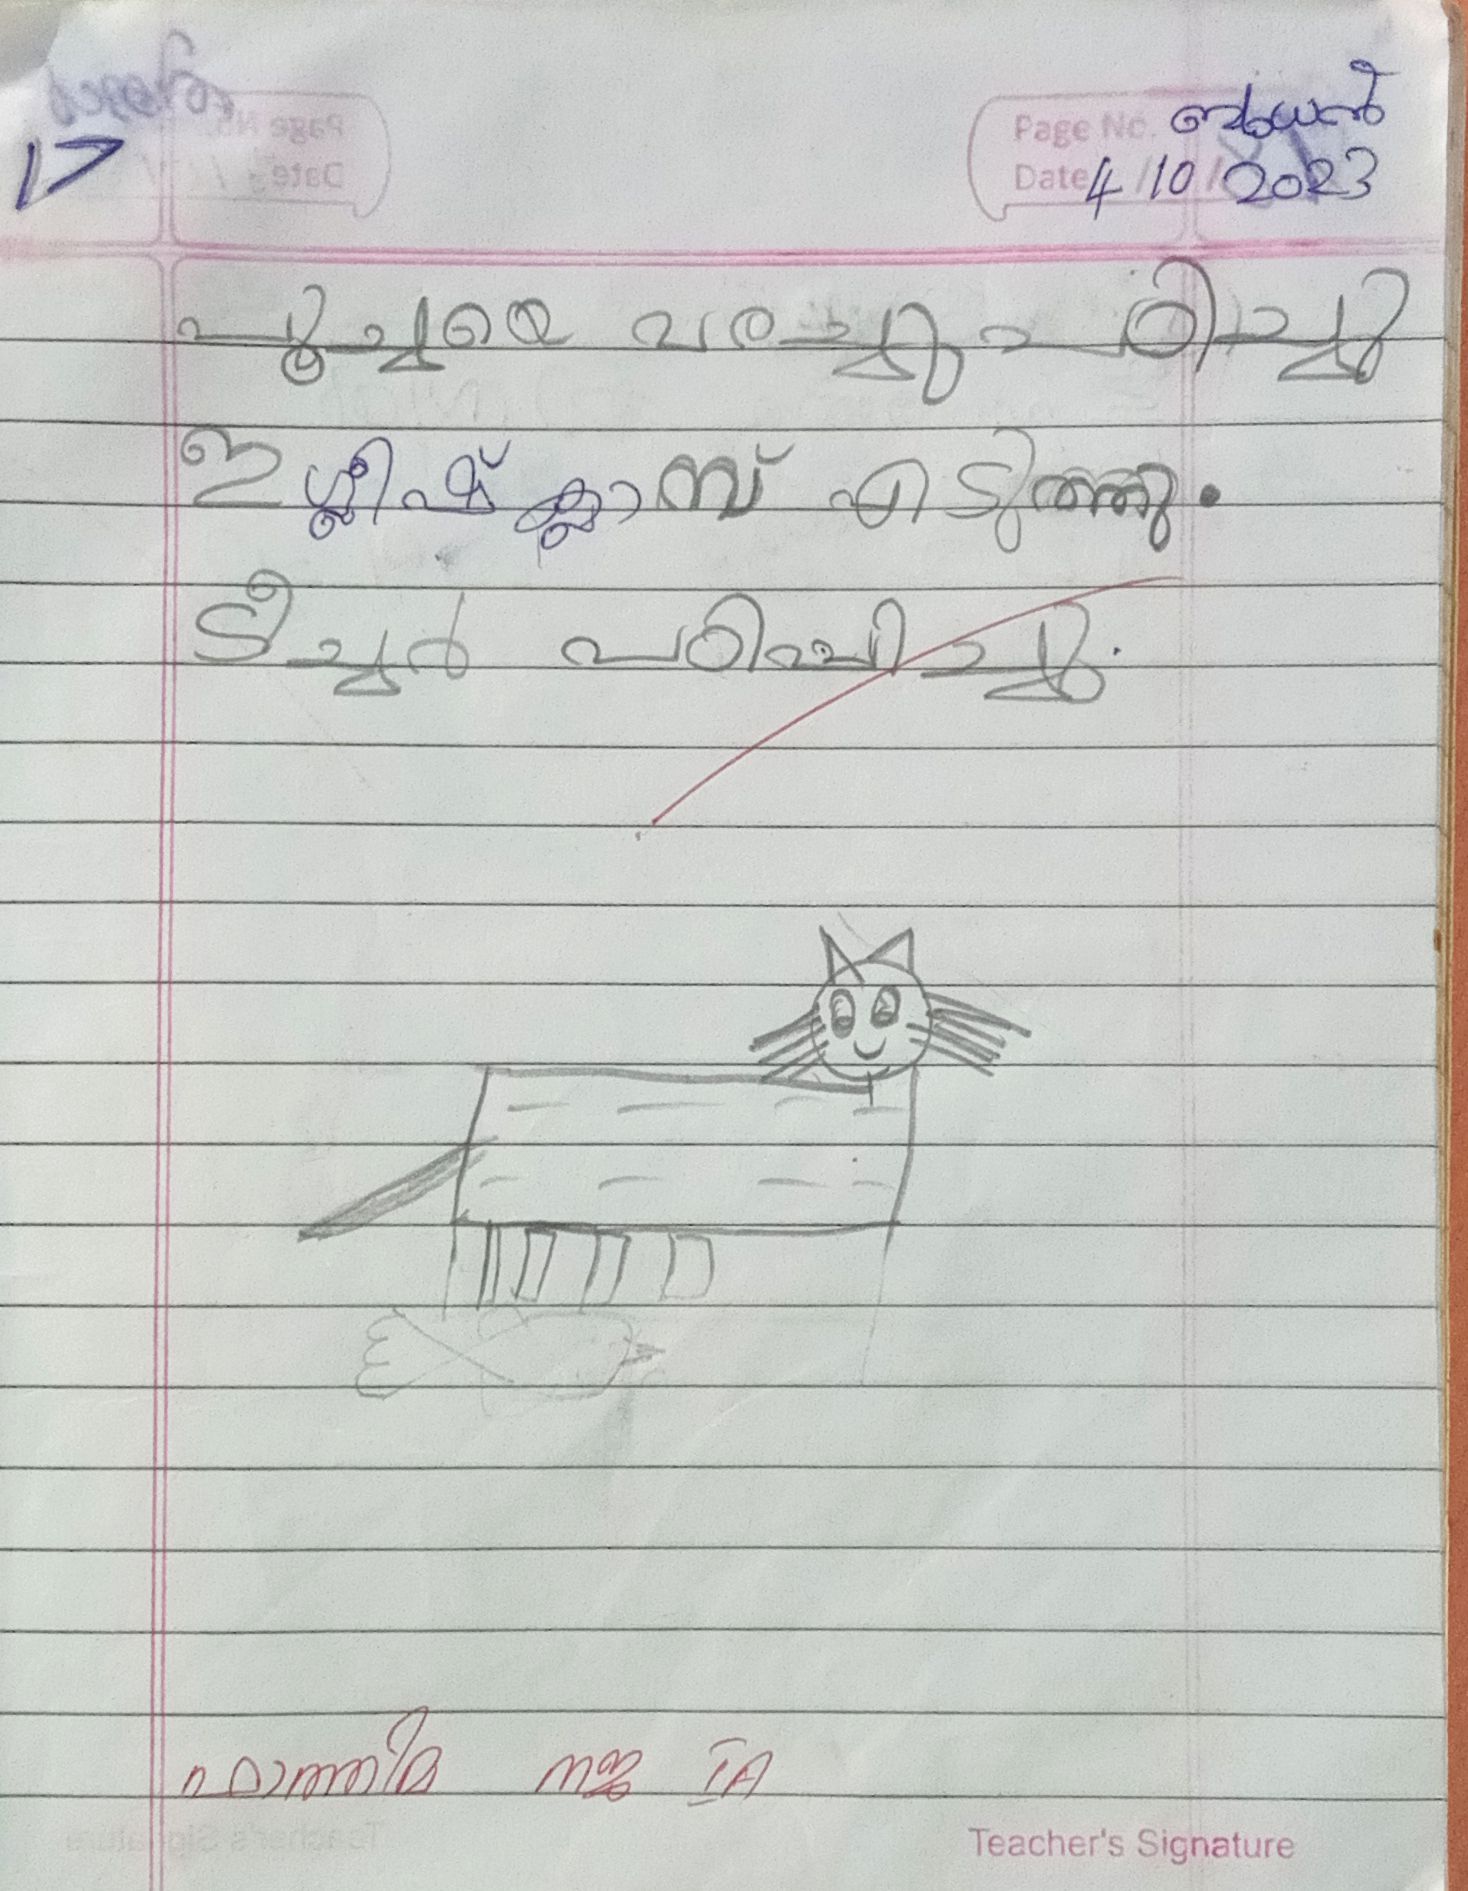 Page No. ബുധൻ
Date 4/10/2023
പൂച്ചയെ വരച്ചു പഠിച്ചു
ഇഗ്ലീഷ് ക്ലാസ് എടുത്തു.
ടീച്ചർ പഠിപ്പിച്ചു.
ഫാത്തിമ നജ IA
Teacher's Signature